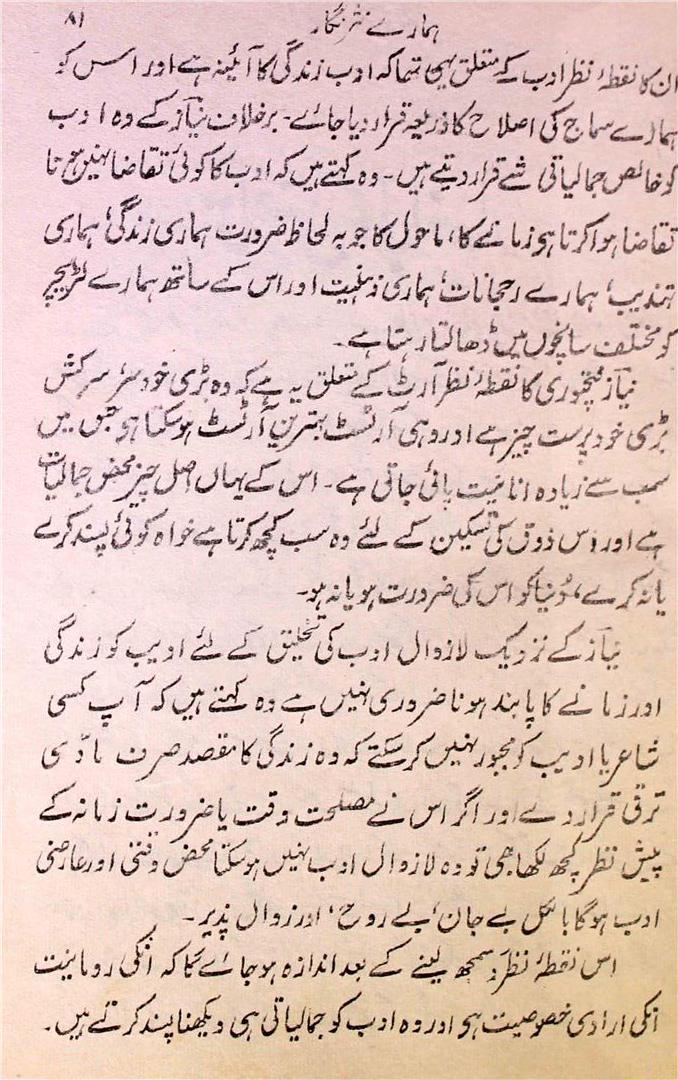 ہمارے نثر نگار ۸۱
ان کا نقطۂ نظر ادب کے متعلق یہی تھا کہ ادب زندگی کا آئینہ ہے اور اسس کو
ہمارے سماج کی اصلاح کا ذریعہ قرار دیا جاے۔ برخلاف نیاز کے وہ ادب
کو خالص جمالیاتی شے قرار دیتے ہیں۔ وہ کہتے ہیں کہ ادب کا کوئی تقاضا نہیں ہوتا
تقاضا ہوا کرتا ہو زمانے کا، ماحول کا جو بہ لحاظ ضرورت ہماری زندگی، ہماری
تہذیب، ہمارے رحجانات، ہماری ذہنیت اور اس کے ساتھ ہمارے لٹریچر
کو مختلف سانچوں میں ڈھالتا رہتا ہے۔
نیاز فتحپوری کا نقطۂ نظر آرٹ کے متعلق یہ ہے کہ وہ بڑی خود سر سرکش
بڑی خود پرست چیز ہے اور وہی آرٹسٹ بہترین آرٹسٹ ہو سکتا ہو جس میں
سب سے زیادہ انانیت پائی جاتی ہے۔ اس کے یہاں اصل چیز محض جمالیات
ہے اور اس ذوق کی تسکین کے لئے وہ سب کچھ کرتا ہے خواہ کوئی پسند کرے
یا نہ کرے، دُنیا کو اس کی ضرورت ہو یا نہ ہو۔
نیاز کے نزدیک لازوال ادب کی تخلیق کے لئے ادیب کو زندگی
اور زمانے کا پابند ہونا ضروری نہیں ہے وہ کہتے ہیں کہ آپ کسی
شاعر یا ادیب کو مجبور نہیں کر سکتے کہ وہ زندگی کا مقصد صرف مادّی
ترقی قرار دے اور اگر اس نے مصلحت وقت یا ضرورت زمانہ کے
پیش نظر کچھ لکھا بھی تو وہ لازوال ادب نہیں ہو سکتا محض وقتی اور عارضی
ادب ہوگا بالکل بے جان، بے روح، اور زوال پذیر۔
اس نقطۂ نظر کو سمجھ لینے کے بعد اندازہ ہو جاے گا کہ انکی رومانیت
انکی ارادی خصوصیت ہو اور وہ ادب کو جمالیاتی ہی دیکھنا پسند کرتے ہیں۔